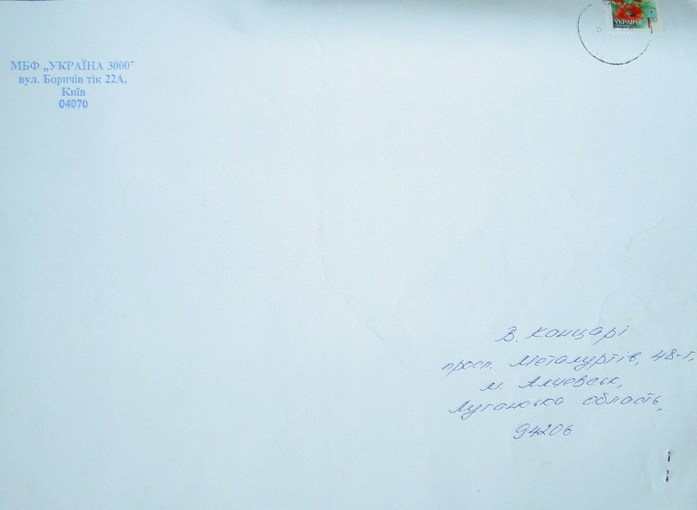 МБФ „УКРАЇНА 3000”
вул. Боричів тік 22А,
Київ
04070
УКРАЇНА
В. Концарі
просп. Металургів, 48-г,
м. Алчевськ,
Луганська область,
94206